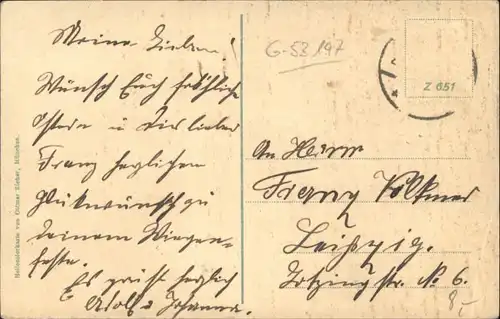 Meine Lieben!
Wünsch Euch fröhliche
Ostern u Dir lieber
Franz herzlichen
Glückwunsch zu
Deinem Wiegen-
feste.
Es grüßt herzlich
Adolf u Johanna.
G-53197
Z 651
An Herrn
Franz Volkmer
Leipzig.
str. No 6.
8,-
Medicikarte von Ottmar Zieher, München.